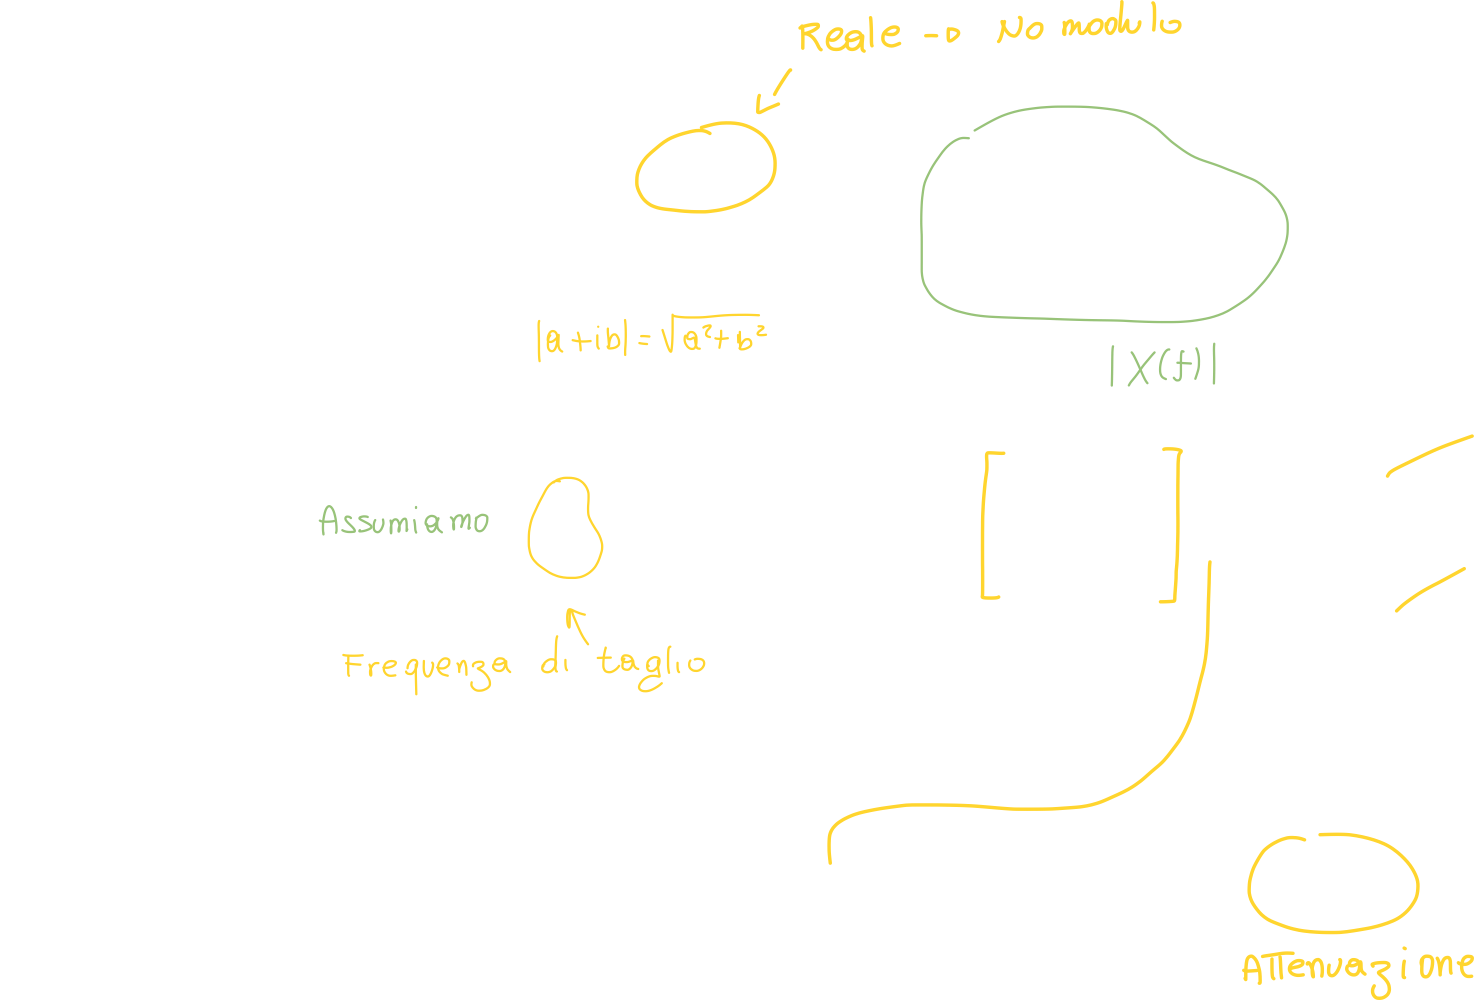 Reale → No modulo
|a+ib| = √a²+b²
|X(f)|
Assumiamo
Frequenza di taglio
Attenuazione